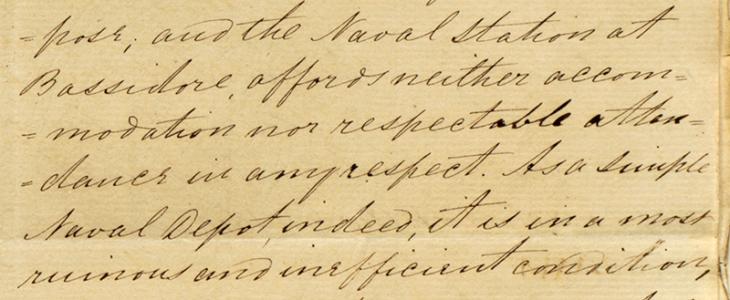 =pose; and the Naval station at
Bassidore, affords neither accom=
=modation nor respectable atten=
=dance in any respect. As a simple
Naval Depot, indeed, it is in a most
ruinous and inefficient condition,